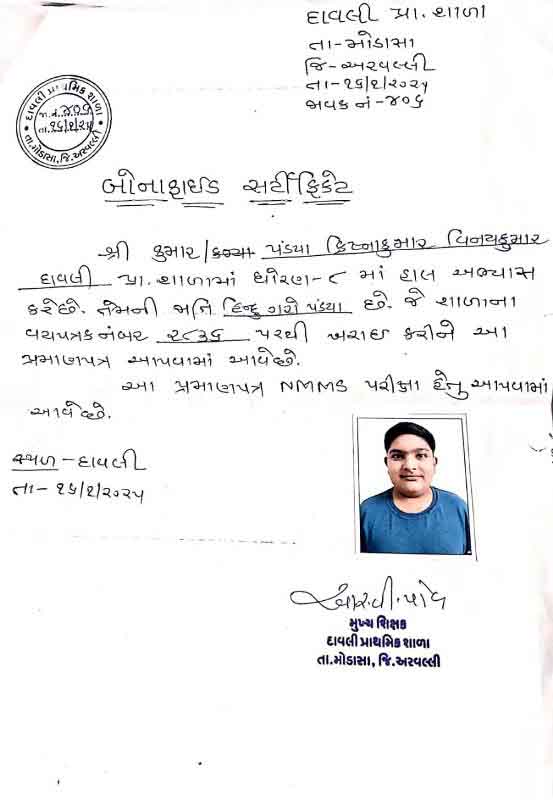 દાવલી પ્રા. શાળા
તા-મોડાસા
જિ-અરવલ્લી
તા-૧૬/૧/૨૦૨૫
જાવક નં-૪૦૬
દાવલી પ્રાથમિક શાળા
જા.નં. ૪૦૬
તા. ૧૬/૧/૨૫
તા.મોડાસા, જિ.અરવલ્લી
બોનાફાઈડ સર્ટીફિકેટ
શ્રી કુમાર/કન્યા પંડયા ક્રિષ્નાકુમાર વિનયકુમાર
દાવલી પ્રા. શાળામાં ધોરણ-૮ માં હાલ અભ્યાસ
કરે છે. તેમની જાતિ હિન્દુ ગરો પંડયા છે. જે શાળાના
વયપત્રક નંબર ૨૮૩૬ પરથી ખરાઇ કરીને આ
પ્રમાણપત્ર આપવામાં આવે છે.
આ પ્રમાણપત્ર NMMS પરીક્ષા હેતુ આપવામાં
આવે છે.
સ્થળ-દાવલી
તા-૧૬/૧/૨૦૨૫
મુખ્ય શિક્ષક
દાવલી પ્રાથમિક શાળા
તા.મોડાસા, જિ.અરવલ્લી